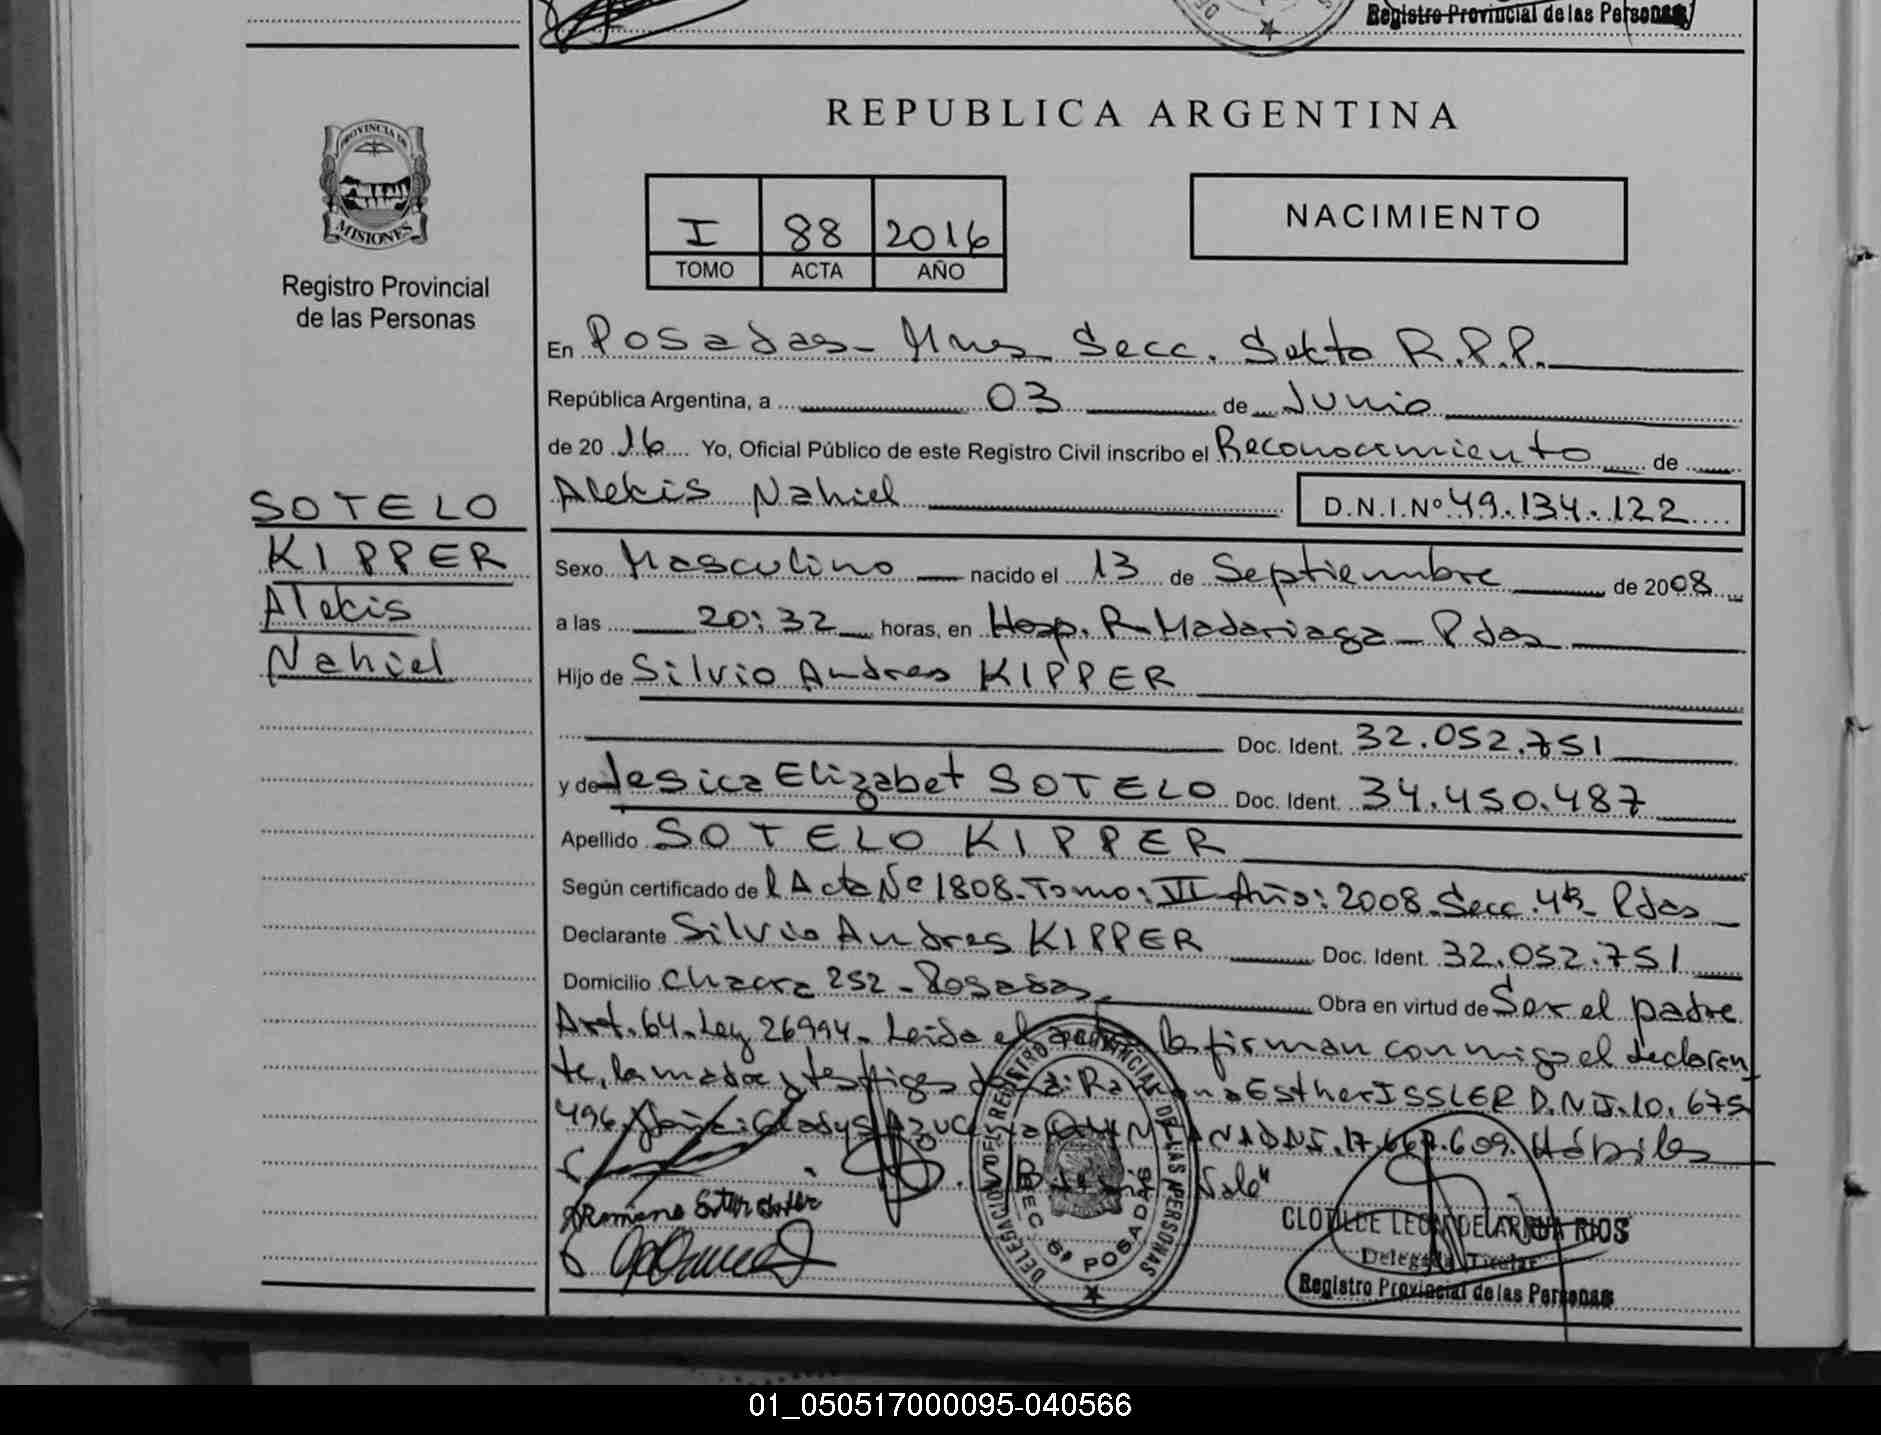 Registro Provincial de las Personas
REPUBLICA ARGENTINA
PROVINCIA DE
MISIONES
Registro Provincial
de las Personas
I 88 2016
TOMO ACTA AÑO
NACIMIENTO
En Posadas - Mnes Secc. Sexta R.P.P.
República Argentina, a 03 de Junio
de 2016 Yo, Oficial Público de este Registro Civil inscribo el Reconocimiento de
Alexis Nahiel D.N.I.Nº 49.134.122
SOTELO
KIPPER
Alexis
Nahiel
Sexo Masculino nacido el 13 de Septiembre de 2008
a las 20:32 horas, en Hosp. R. Madariaga - Pdas
Hijo de Silvio Andres KIPPER
Doc. Ident. 32.052.751
y de Jesica Elizabet SOTELO Doc. Ident. 34.450.487
Apellido SOTELO KIPPER
Según certificado del Acta Nº 1808. Tomo: VI Año: 2008. Secc. 4ta Pdas
Declarante Silvio Andres KIPPER Doc. Ident. 32.052.751
Domicilio Chacra 252 - Posadas Obra en virtud de Ser el padre
Art. 64. Ley 26994. Leida el acta la firman conmigo el declaran
te, la madre y testigos Esther ISSLER D.N.I. 10.675
496. Gladys DNI. 17.667.609. Hábiles
Vale"
Romana Ester Issler
DELEGACION DEL REGISTRO PROVINCIAL DE LAS PERSONAS
SEC 6ª POSADAS
CLOTILDE RIOS
Delegada Titular
Registro Provincial de las Personas
01_050517000095-040566